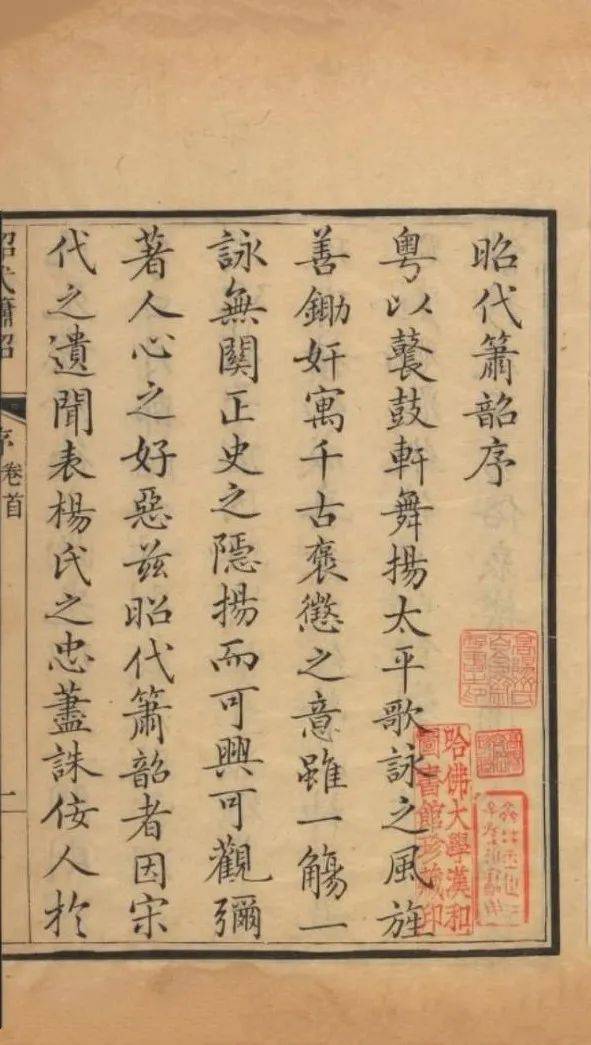 昭代簫韶序
粤以鼚鼓軒舞揚太平歌詠之風旌
善鋤奸寓千古褒懲之意雖一觴一
詠無關正史之隱揚而可興可觀彌
著人心之好惡兹昭代簫韶者因宋
代之遺聞表楊氏之忠藎誅佞人於
昭代簫韶
序
卷首
一
哈佛大學漢和
圖書館珍藏印